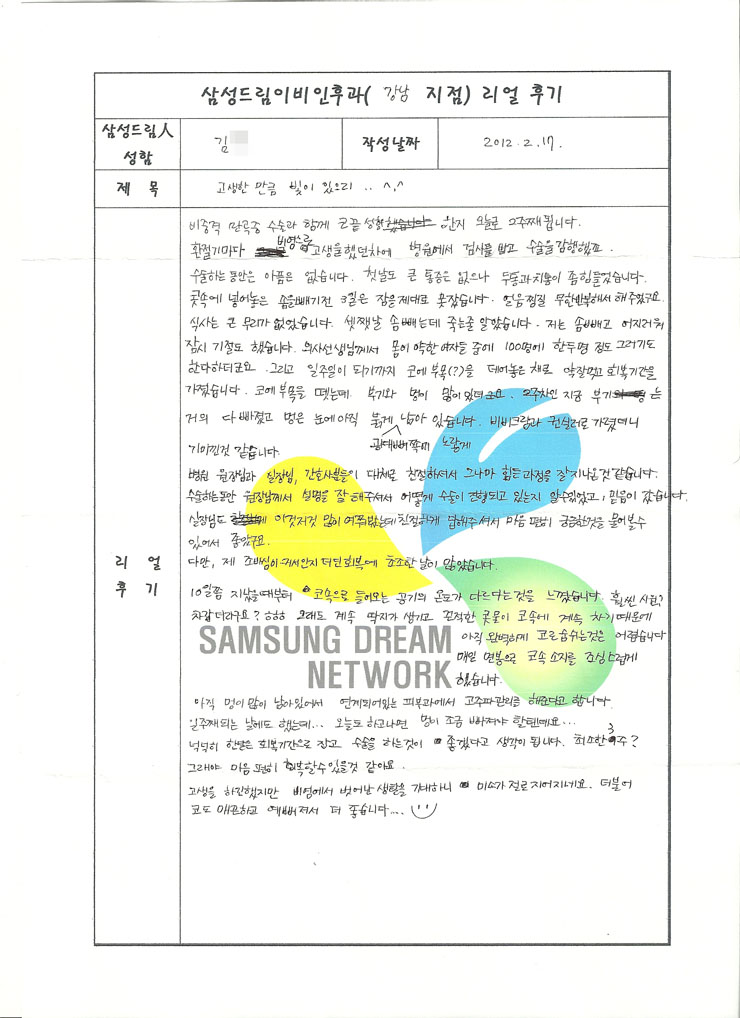 삼성드림이비인후과( 강남 지점) 리얼 후기
삼성드림人 성함
김
작성날짜
2012. 2. 17.
제 목
고생한 만큼 빛이 있으리 .. ^.^
리 얼 후 기
비중격 만곡증 수술과 함께 코끝 성형 한지 오늘로 2주째 됩니다.
환절기마다 비염으로 고생을 했던차에 병원에서 검사를 받고 수술을 감행했죠.
수술하는동안은 아픔은 없습니다. 첫날도 큰 통증은 없으나 두통과 치통이 좀 힘들었습니다.
콧속에 넣어놓은 솜을빼기전 3일은 잠을 제대로 못잤습니다. 얼음찜질 무한반복해서 해주었구요.
식사는 큰 무리가 없었습니다. 셋째날 솜 빼는데 죽는줄 알았습니다. 저는 솜빼고 어지러워
잠시 기절도 했습니다. 의사선생님께서 몸이 약한 여자들 중에 100명에 한두명 정도 그러기도
한다하더군요. 그리고 일주일이 되기까지 코에 부목(?)을 데어놓은 채로 약잘먹고 회복기간을
가졌습니다. 코에 부목을 뗐는데 붓기와 멍이 많이 있더군요. 2주차인 지금 부기는
거의 다 빠졌고 멍은 눈에 아직 붉게 남아 있습니다. 비비크림과 컨실러로 가렸더니
광대뼈쪽에 노랗게
기미낀것 같습니다.
병원 원장님과 실장님, 간호사분들이 대체로 친절하셔서 그나마 힘든 과정을 잘 지나온것 같습니다.
수술하는동안 원장님께서 설명을 잘 해주셔서 어떻게 수술이 진행되고 있는지 알수있었고, 믿음이 갔습니다.
실장님도 이것저것 많이 여쭈봤는데 친절하게 답해주셔서 마음 편히 궁금한것을 물어볼수
있어서 좋았구요.
다만, 제 조바심이 커서인지 더딘 회복에 초조한 날이 많았습니다.
10일쯤 지났을때부터 코속으로 들어오는 공기의 온도가 다르다는것을 느꼈습니다. 훨씬 시원?
차갑더라구요? ㅎㅎㅎ 오래도 계속 딱지가 생기고 끈적한 콧물이 코속에 계속 차기 때문에
아직 완벽하게 고르숨쉬는것은 어렵습니다
매일 면봉으로 코속 소지를 조심스럽게
했습니다.
SAMSUNG DREAM
NETWORK
아직 멍이 많이 남아있어서 연계되어있는 피부과에서 고주파관리를 해준다고 합니다.
일주째되는 날에도 했는데... 오늘도 하고나면 멍이 조금 빠져야 할텐데요...
넉넉히 한달은 회복기간으로 잡고 수술을 하는것이 좋겠다고 생각이 됩니다. 최소한 3주?
그래야 마음 편히 회복할수 있을것 같아요.
고생을 하긴했지만 비염에서 벗어난 생활을 기대하니 미소가 절로 지어지네요. 더불어
코도 매끈하고 예뻐져서 더 좋습니다...